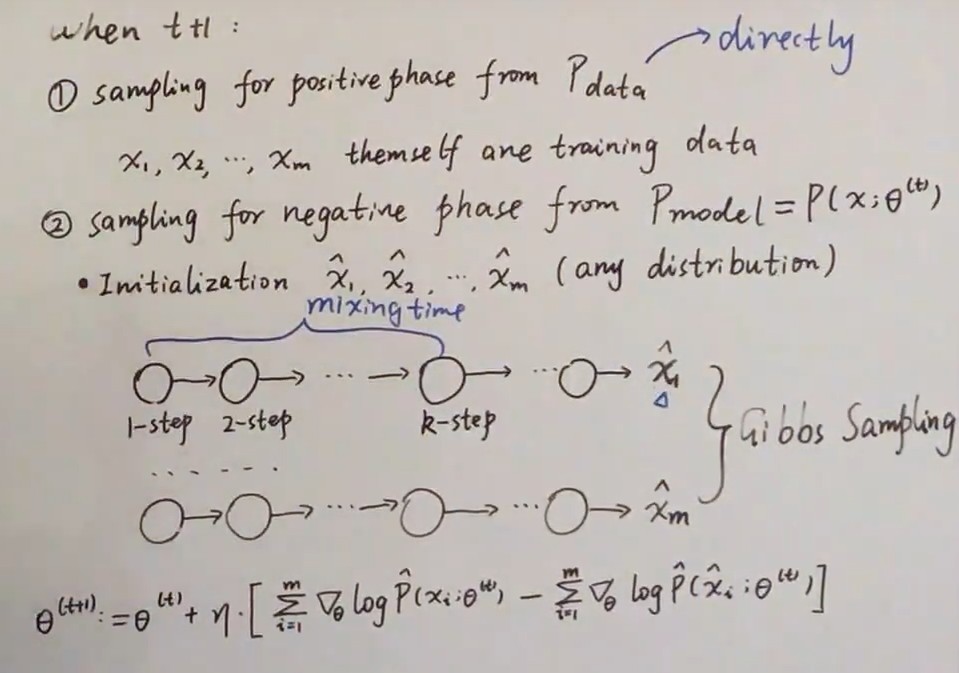 when t+1 :
directly
① sampling for positive phase from Pdata
x₁, x₂, ⋯, xm themself are training data
② sampling for negative phase from Pmodel = P(x;θ⁽ᵗ⁾)
• Initialization x̂₁, x̂₂, ⋯, x̂m (any distribution)
mixing time
⋯ ⋯ x̂₁
1-step 2-step k-step
Gibbs Sampling
⋯ ⋯ x̂m
θ⁽ᵗ⁺¹⁾ := θ⁽ᵗ⁾ + η·[ ∑ᵢ₌₁ᵐ ∇θ log P̂(xᵢ;θ⁽ᵗ⁾) − ∑ᵢ₌₁ᵐ ∇θ log P̂(x̂ᵢ;θ⁽ᵗ⁾) ]